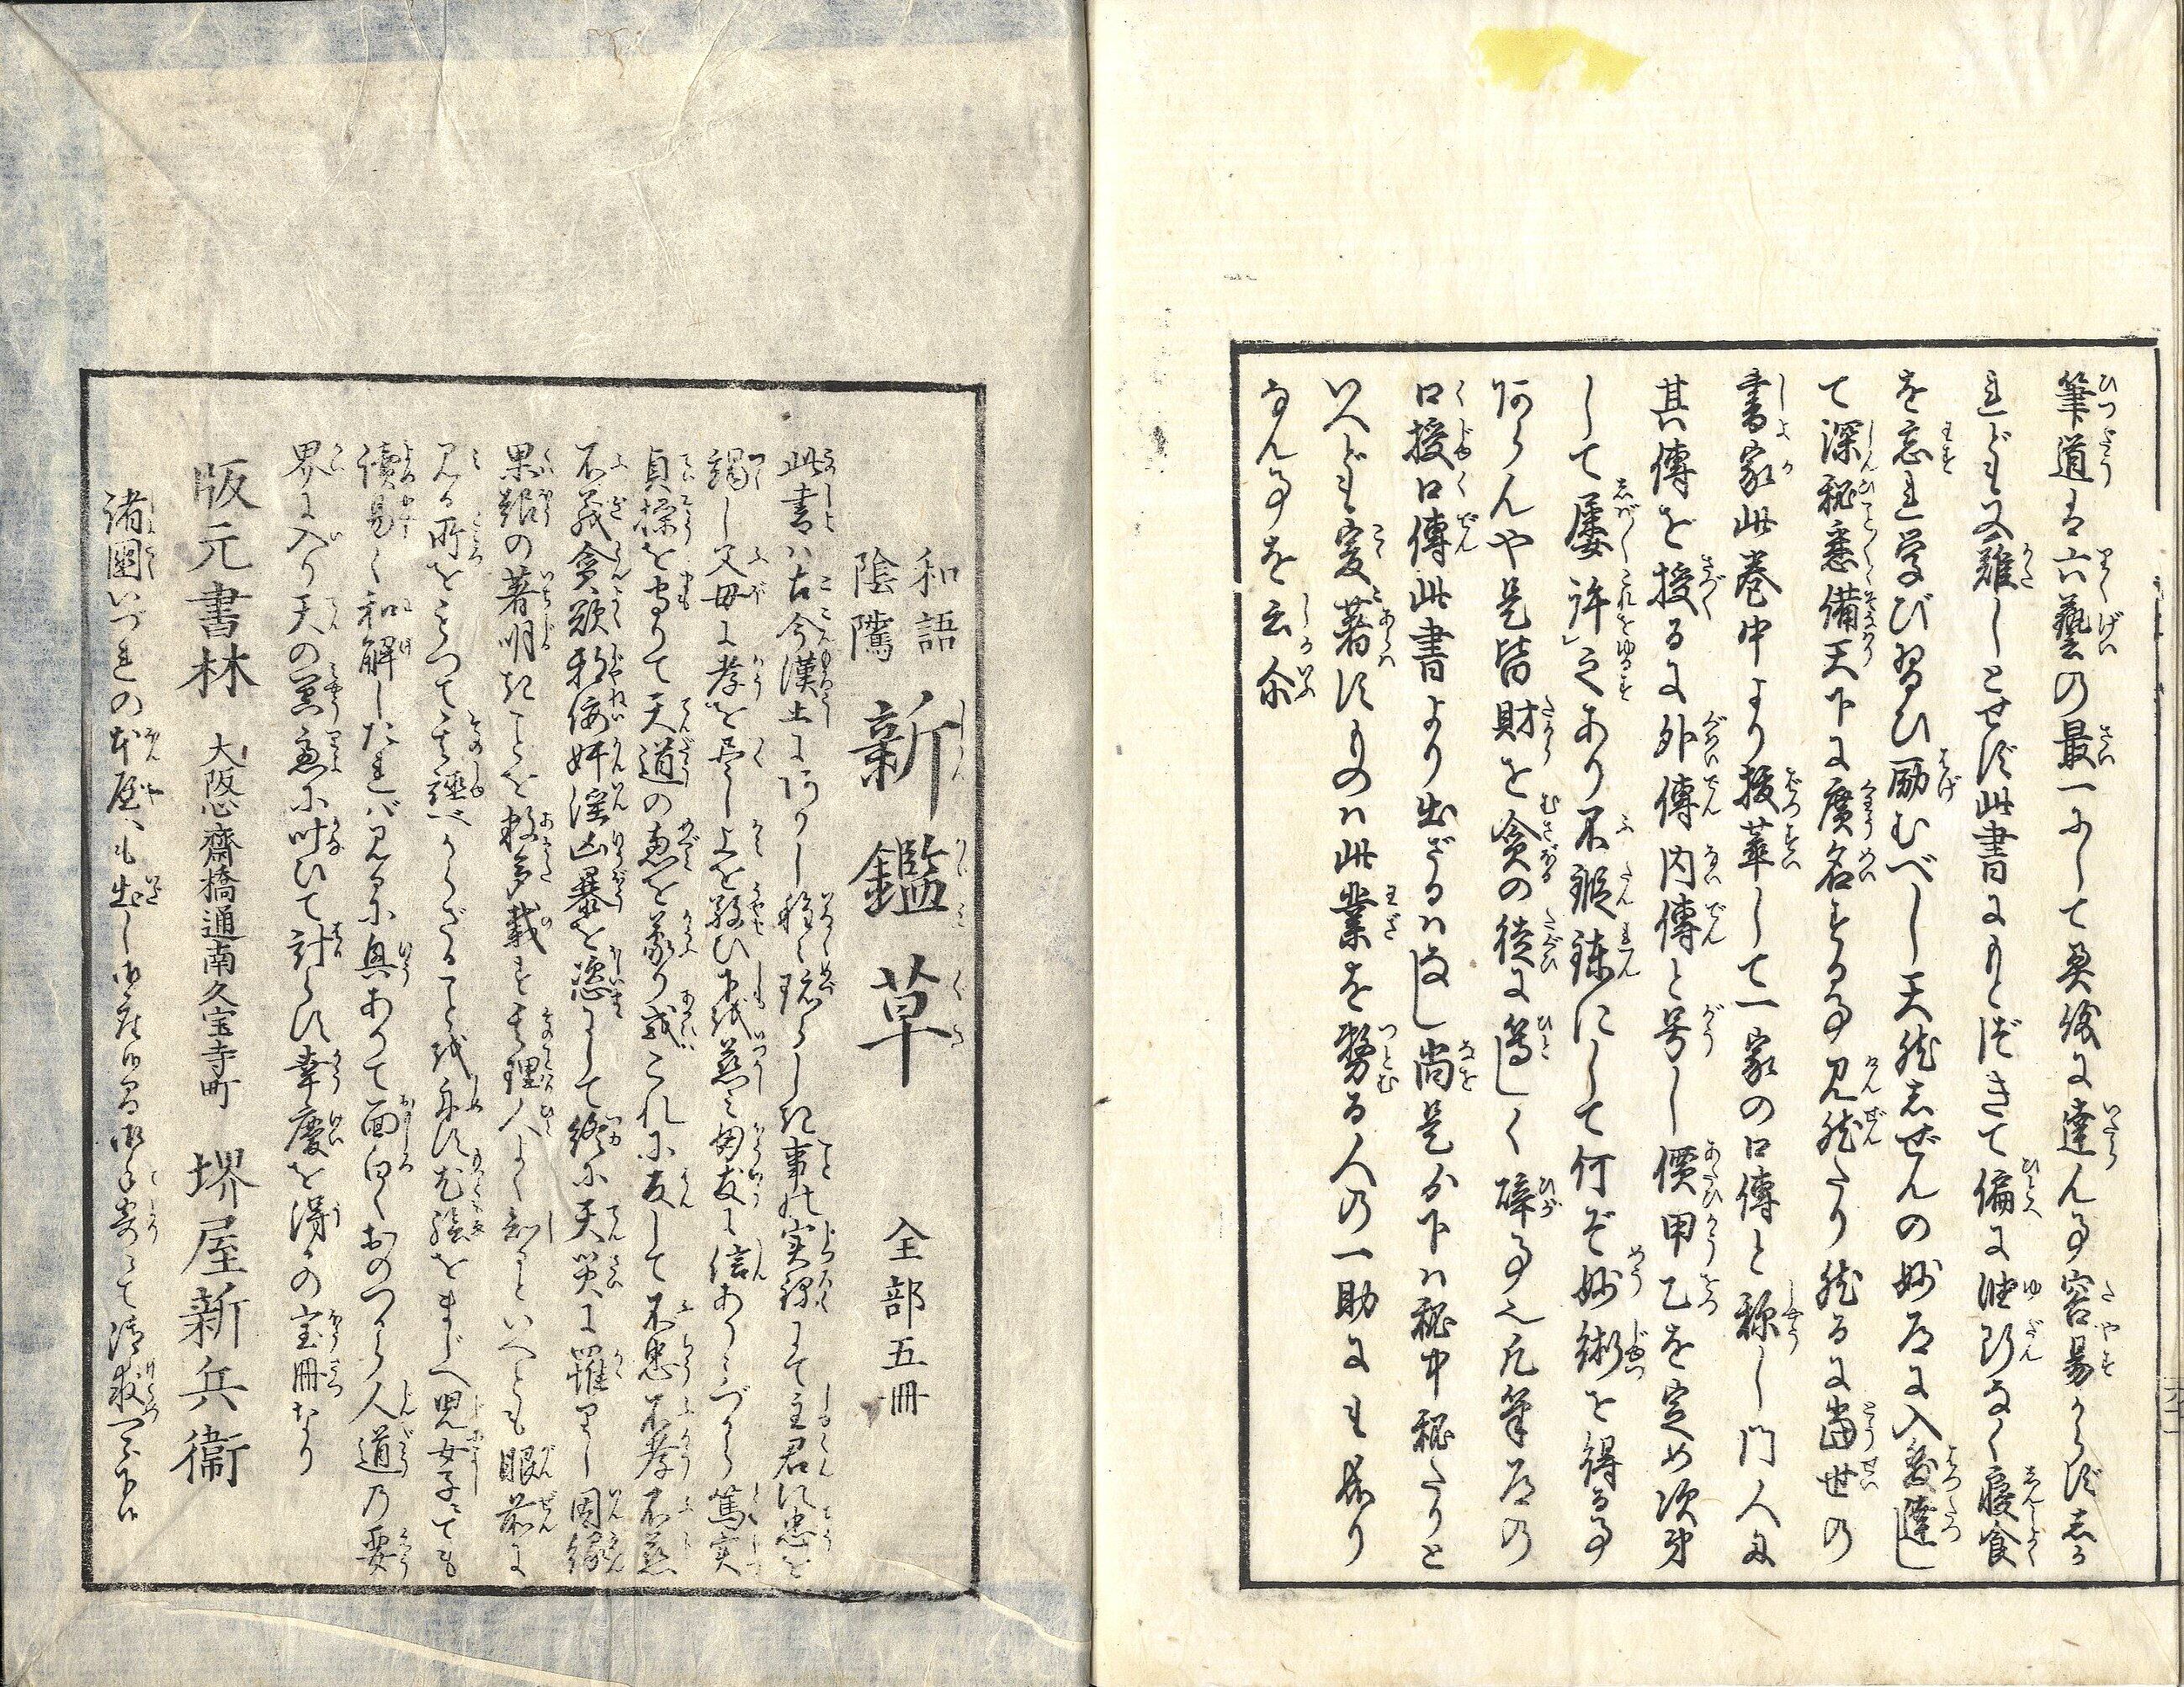 筆道は六藝の最一にして奥儀に達ん事容易からずしか
れども又難しとせず此書にもとづきて偏に油断なく寝食
を忘れ学び習ひ励むべし天然しぜんの妙所に入発達し
て深秘悉備天下に廣名する事見然たり然るに當世の
書家此巻中より抜萃して一家の口傳と称し門人に
其傳を授るに外傳内傳と号し價甲乙を定め次第
して屡許之あり不鍛錬にして何ぞ妙術を得る事
阿らんや是皆財を貪の徒に等しく碎事也凡筆道の
口授口傳此書より出ざるハなし尚是が下ハ秘中秘たりと
いへども爰著すものハ此業を努る人の一助にも成り
なん事を云尓
和語
陰隲
新鑑草 全部五冊
此書ハ古今漢土に阿りし種々珍らしき事の実録にて主君に忠を
竭し父母に孝を尽し上を敬ひ下を慈み朋友に信ありミづから篤実
貞操を守りて天道の恵を蒙り或ハこれに反して不忠不孝不慈
不義貪欲邪佞奸淫凶暴を恣にして終に天災に罹りし因縁
果報の著明きことを数多載す其理人よく知るといへども眼前に
見る所をもつて其証べからざることを示す尤絵をまじへ児女子にても
読易く和解したれバ見るに興ありて面白くおのつから人道乃要
界に入り天の冥慮に叶ひて計らず幸慶を得るの宝冊なり
版元書林 大阪心齋橋通南久宝寺町 堺屋新兵衞
諸國いづれの本屋へも出し御座候間御手寄にて御求可被下候